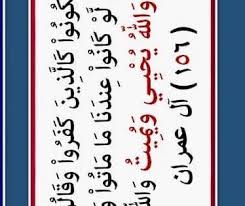 كُونُوا كَالَّذِينَ كَفَرُوا وَقَالُ
لَّوْ كَانُوا عِندَنَا مَا مَاتُوا وَ
وَاللَّهُ يُحْيِي وَيُمِيتُ وَاللَّ
(١٥٦) آل عمران